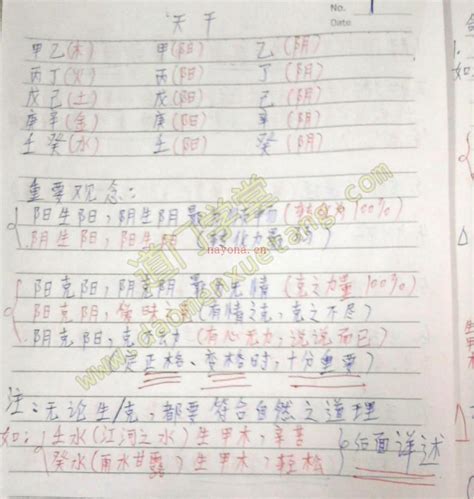 No. 1
Date
天干
甲乙(木) 甲(阳) 乙(阴)
丙丁(火) 丙(阳) 丁(阴)
戊己(土) 戊(阳) 己(阴)
庚辛(金) 庚(阳) 辛(阴)
壬癸(水) 壬(阳) 癸(阴)
重要观念:
阳生阳,阴生阴 最 100%)
阴生阳,阳生阴
nayona.cn
道门学堂
www.daomenxuetang.com
阳克阳,阴克阴,最为无情(克之力量100%)
阳克阴, (有情之克,克之不尽)
阴克阳,克 (有心无力,说说而已)
定正格、变格时,十分重要)
注:无论生/克,都要符合自然之道理
如: 壬水(江河之水)生甲木,辛苦
癸水(雨水甘露)生甲木,轻松
后面详述
如